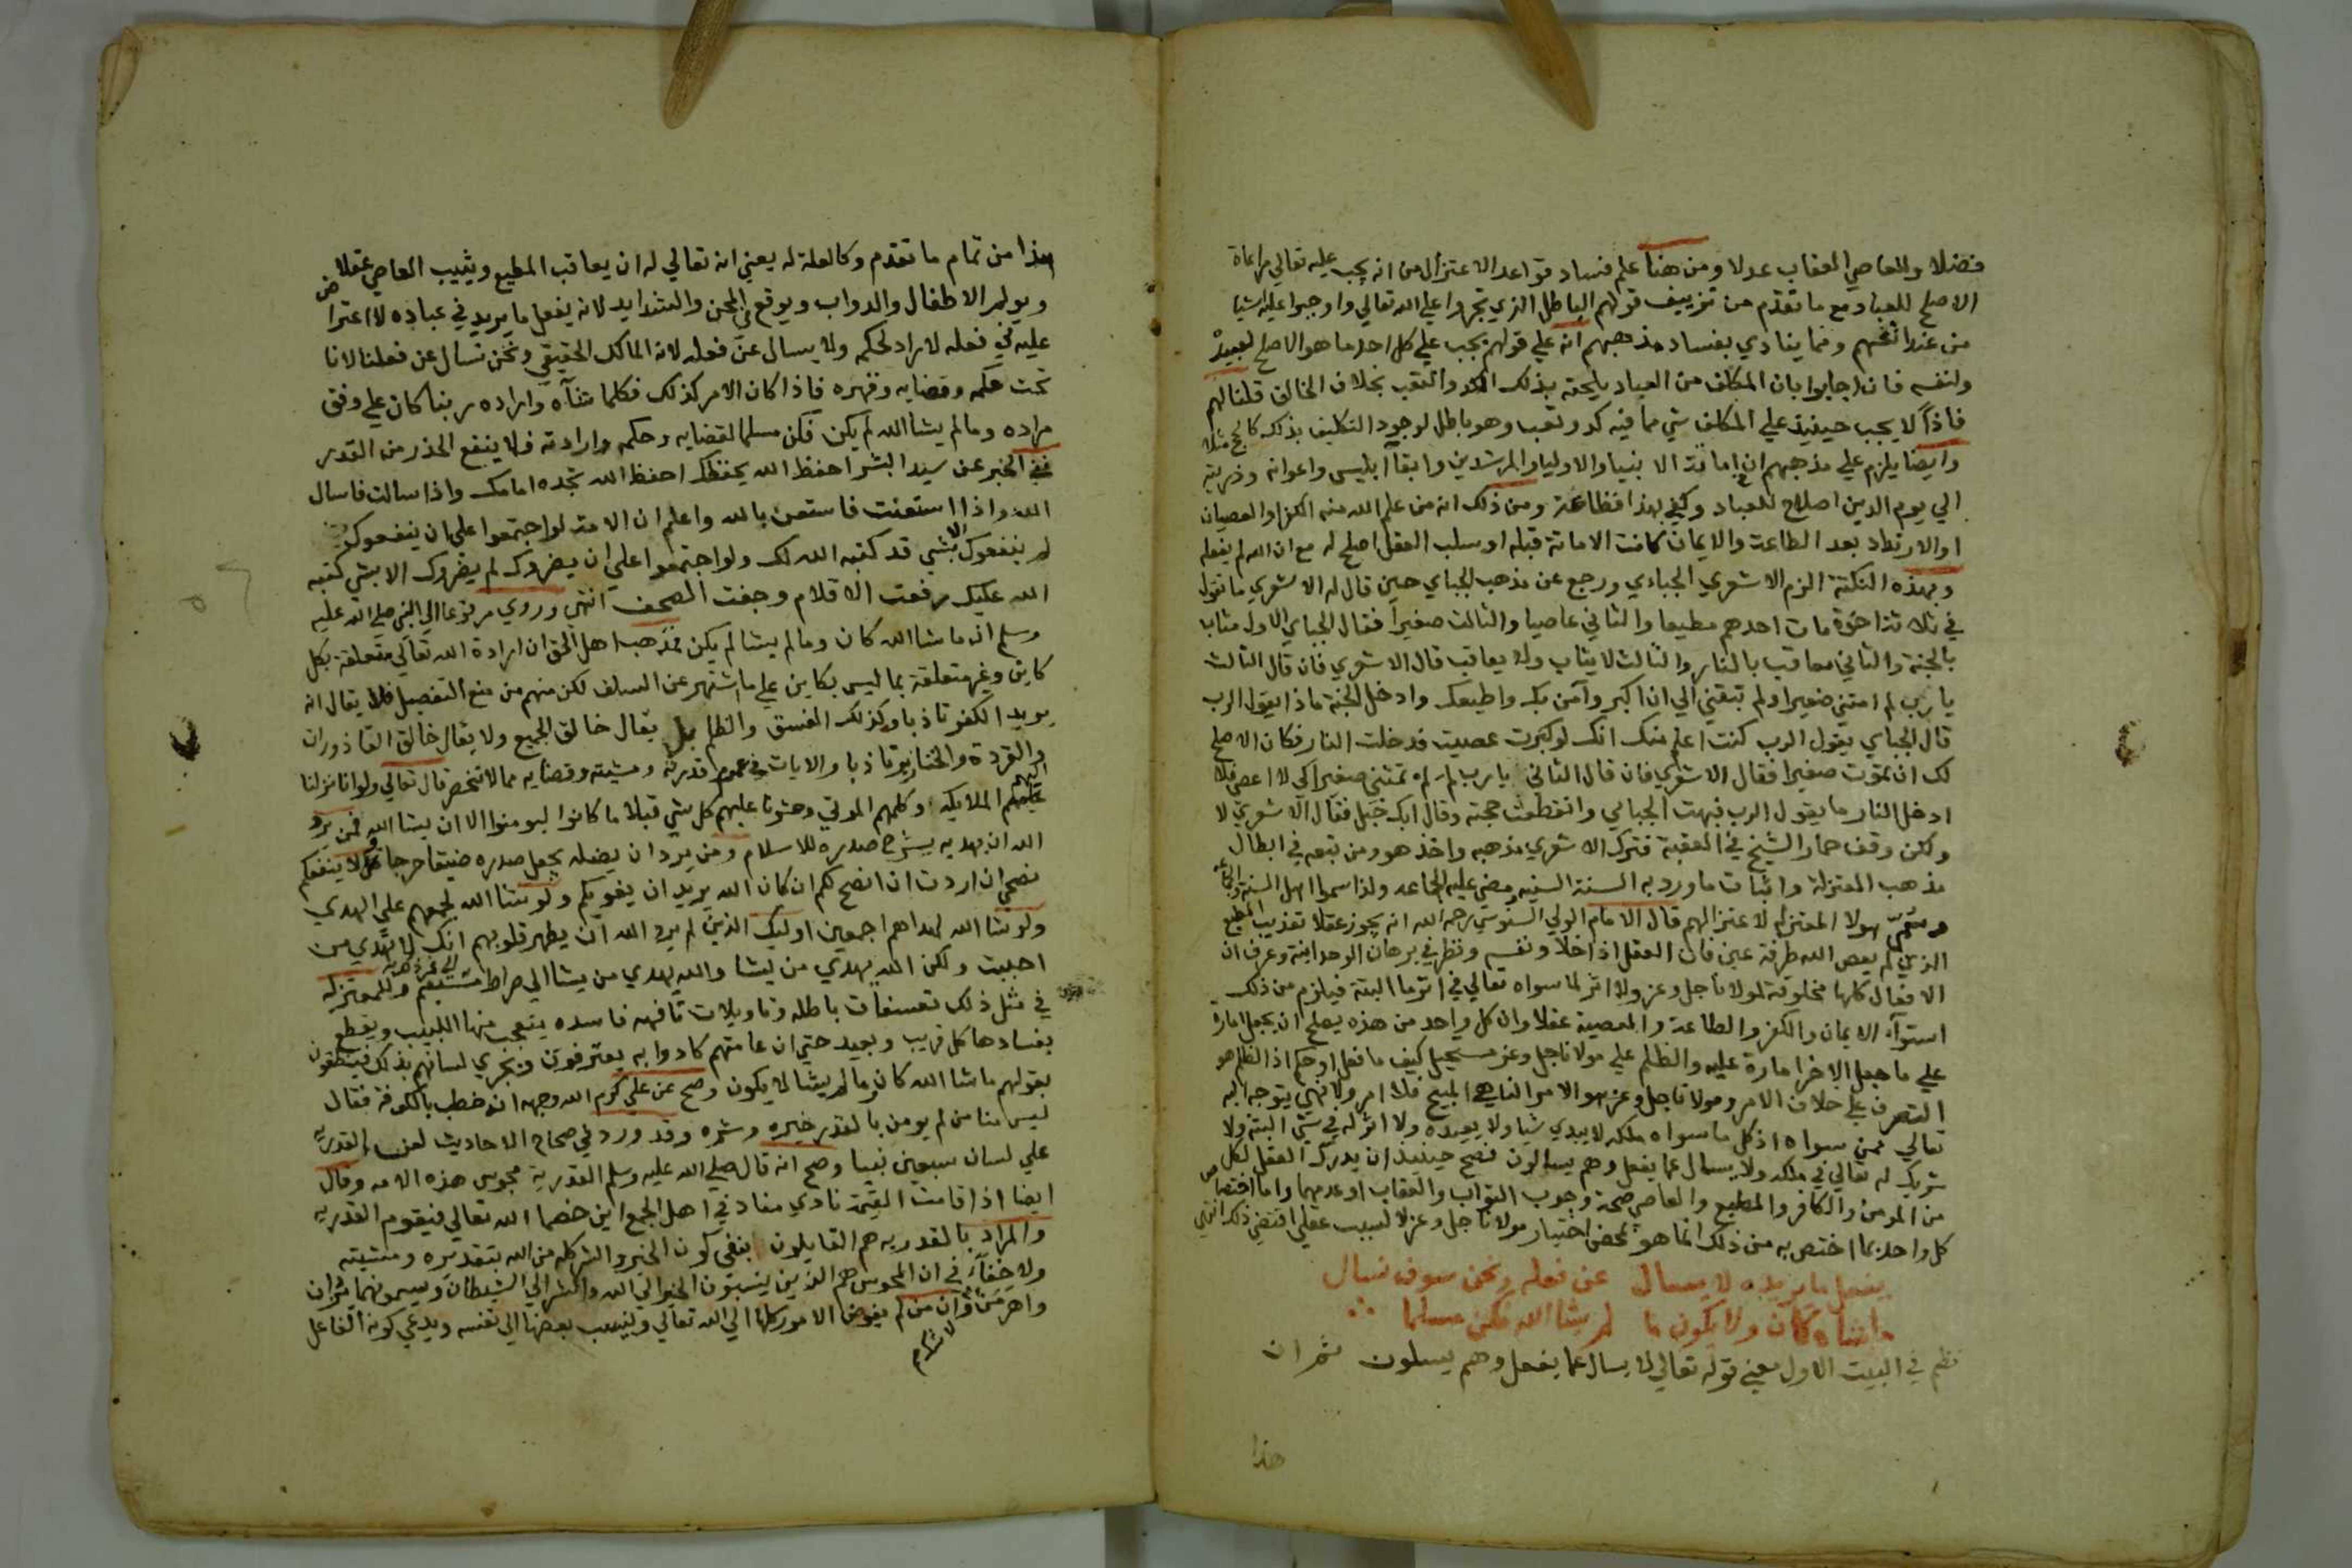 فضلا وللعاصي العقاب عدلا ومن هنا علم فساد قواعد الاعتزال من انه يجب عليه تعالي مراعاة
الاصلح للعباد مع ما تقدم من تزييف قولهم الباطل الذي تجروا علي الله تعالي واوجبوا عليه اشيا
من عند انفسهم ومما ينادي بفساد مذهبهم انه علي قولهم يجب علي كل احد ما هو الاصلح لعبيده
ولنفسه فان اجابوا بان المكلف من العباد يلحقه بذلك الكد والتعب بخلاف الخالق قلنا لهم
فاذا لا يجب حينئذ علي المكلف شي مما فيه كد وتعب وهو باطل لوجود التكليف بذلك كالحج مثلا
وايضا يلزم علي مذهبهم ان اماتة الانبيا والاوليا والمرشدين وابقآ ابليس واعوانه وذريته
الي يوم الدين اصلح للعباد وكفي بهذا فظاعة ومن ذلك ان من علم الله منه الكفر او العصيان
او الارتداد بعد الطاعة والايمان كانت الاماتة قبله او سلب العقل اصلح له مع ان الله لم يفعله
وبهذه النكتة الزم الاشعري الجباءي ورجع عن مذهب الجباي حين قال له الاشعري ما تقول
في ثلاثة اخوة مات احدهم مطيعا والثاني عاصيا والثالث صغيرا فقال الجباي الاول مثاب
بالجنة والثاني معاقب بالنار والثالث لا يثاب ولا يعاقب قال الاشعري فان قال الثالث
يا رب لم امتني صغيرا ولم تبقني الي ان اكبر وآمن بك واطيعك وادخل الجنة ماذا يقول الرب
قال الجباي يقول الرب كنت اعلم منك انك لو كبرت عصيت فدخلت النار فكان الاصلح
لك ان تموت صغيرا فقال الاشعري فان قال الثاني يا رب لم لم تمتني صغيرا كي لا اعصي فلا
ادخل النار ما يقول الرب فبهت الجباي وانقطعت حجته وقال ابك خبل فقال الاشعري لا
ولكن وقف حمار الشيخ في العقبة فترك الاشعري مذهبه واخذ هو ومن تبعه في ابطال
مذهب المعتزلة واثبات ما ورد به السنة السنيه ومضي عليه الجماعه ولذا سموا اهل السنة والجماعة
وسمي هولا المعتزله لاعتزالهم قال الامام الولي السنوسي رحمه الله انه يجوز عقلا تعذيب المطيع
الذي لم يعص الله طرفة عين فان العقل اذا خلا ونفسه ونظر في برهان الوحدانية وعرف ان
الافعال كلها مخلوقة لمولانا جل وعز ولا اثر لما سواه تعالي في اثر ما البتة فيلزم من ذلك
استوآء الايمان والكفر والطاعة والمعصية عقلا وان كل واحد من هذه يصلح ان يجعل امارة
علي ما جعل الاخر امارة عليه والظلم علي مولانا جل وعز مستحيل كيف ما فعل او حكم اذ الظلم هو
التصرف علي خلاف الامر ومولانا جل وعز هو الامر الناهي المبيح فلا امر ولا نهي يتوجه اليه
تعالي ممن سواه اذ كل ما سواه ملكه لا يبدي شيا ولا يعيده ولا اثر له في شي البتة ولا
شريك له تعالي في ملكه ولا يسال عما يفعل وهم يسالون فصح حينئذ ان يدرك العقل لكل
من المومن والكافر والمطيع والعاصي صحة وجوب الثواب والعقاب او عدمهما واما اختصاص
كل واحد بما اختص به من ذلك انما هو بمحض اختيار مولانا جل وعز لا لسبب عقلي اقتضي ذلك انتهي
يفعل ما يريد لا يسال عن فعله ونحن سوف نسال
ما شاءه كان ولا يكون ما لم يشا الله فكن مسلما
نظم في البيت الاول معني قوله تعالي لا يسال عما يفعل وهم يسلون ثم ان
هذا
هذا من تمام ما تقدم وكالعلة له يعني انه تعالي له ان يعاقب المطيع ويثيب العاصي عقلا
ويولم الاطفال والدواب ويوقع في المحن والشدايد لانه يفعل ما يريد في عباده لا اعتراض
عليه في فعله لا راد لحكمه ولا يسال عن فعله لانه المالك الحقيقي ونحن نسال عن فعلنا لانا
تحت حكمه وقضايه وقهره فاذا كان الامر كذلك فكلما شآه واراده ربنا كان علي وفق
مراده وما لم يشا الله لم يكن فكن مسلما لقضايه وحكمه وارادته فلا ينفع الحذر من القدر
ففي الخبر عن سيد البشر احفظ الله يحفظك احفظ الله تجده امامك واذا سالت فاسال
الله واذا استعنت فاستعن بالله واعلم ان الامة لو اجتمعوا علي ان ينفعوك
لم ينفعوك الا بشي قد كتبه الله لك ولو اجتمعوا علي ان يضروك لم يضروك الا بشي كتبه
الله عليك رفعت الاقلام وجفت الصحف انتهي وروي مرفوعا الي النبي صلي الله عليه
وسلم انه ما شا الله كان وما لم يشا لم يكن فمذهب اهل الحق ان ارادة الله تعالي متعلقة بكل
كاين وغير متعلقة بما ليس بكاين علي ما اشتهر عن السلف لكن منهم من منع التفصيل فلا يقال انه
يريد الكفر تاذبا وكذلك الفسق والظلم بل يقال خالق الجميع ولا يقال خالق القاذورات
والقردة والخنازير تاذبا والايات في عموم قدرته ومشيته وقضايه مما لا تنحصر قال تعالي ولو اننا نزلنا
اليهم الملايكه وكلمهم الموتي وحشرنا عليهم كل شي قبلا ما كانوا ليومنوا الا ان يشا الله فمن يرد
الله ان يهديه يشرح صدره للاسلام ومن يرد ان يضله يجعل صدره ضيقا حرجا ولا ينفعكم
نصحي ان اردت ان انصح لكم ان كان الله يريد ان يغويكم ولو شا الله لجمعهم علي الهدي
ولو شا الله لهداهم اجمعين اوليك الذين لم يرد الله ان يطهر قلوبهم انك لا تهدي من
احببت ولكن الله يهدي من يشا والله يهدي من يشا الي صراط مستقيم الي غير ذلك وللمعتزله
في مثل ذلك تعسفات باطله وتاويلات تافهه فاسده يتعجب منها اللبيب ويقطع
بفسادها كل قريب وبعيد حتي ان عامتهم كادوا به يعترفون ويجري لسانهم بذلك فينطقون
بقولهم ما شا الله كان وما لم يشا لا يكون وصح عن علي كرم الله وجهه انه خطب بالكوفة فقال
ليس منا من لم يومن بالقدر خيره وشره وقد ورد في صحاح الاحاديث لعن القدريه
علي لسان سبعين نبيا وصح انه قال صلي الله عليه وسلم القدرية مجوس هذه الامه وقال
ايضا اذا قامت القيمة نادي مناد في اهل الجمع اين خصما الله تعالي فيقوم القدريه
والمراد بالقدريه هم القايلون بنفي كون الخير والشر كله من الله بتقديره ومشيته
ولا خفآء في ان المجوس هم الذين ينسبون الخير الي الله والشر الي الشيطان ويسمونهما يزدان
واهرمن وان من لم يفوض الامور كلها الي الله تعالي وينسب بعضها الي نفسه ويدعي كونه الفاعل